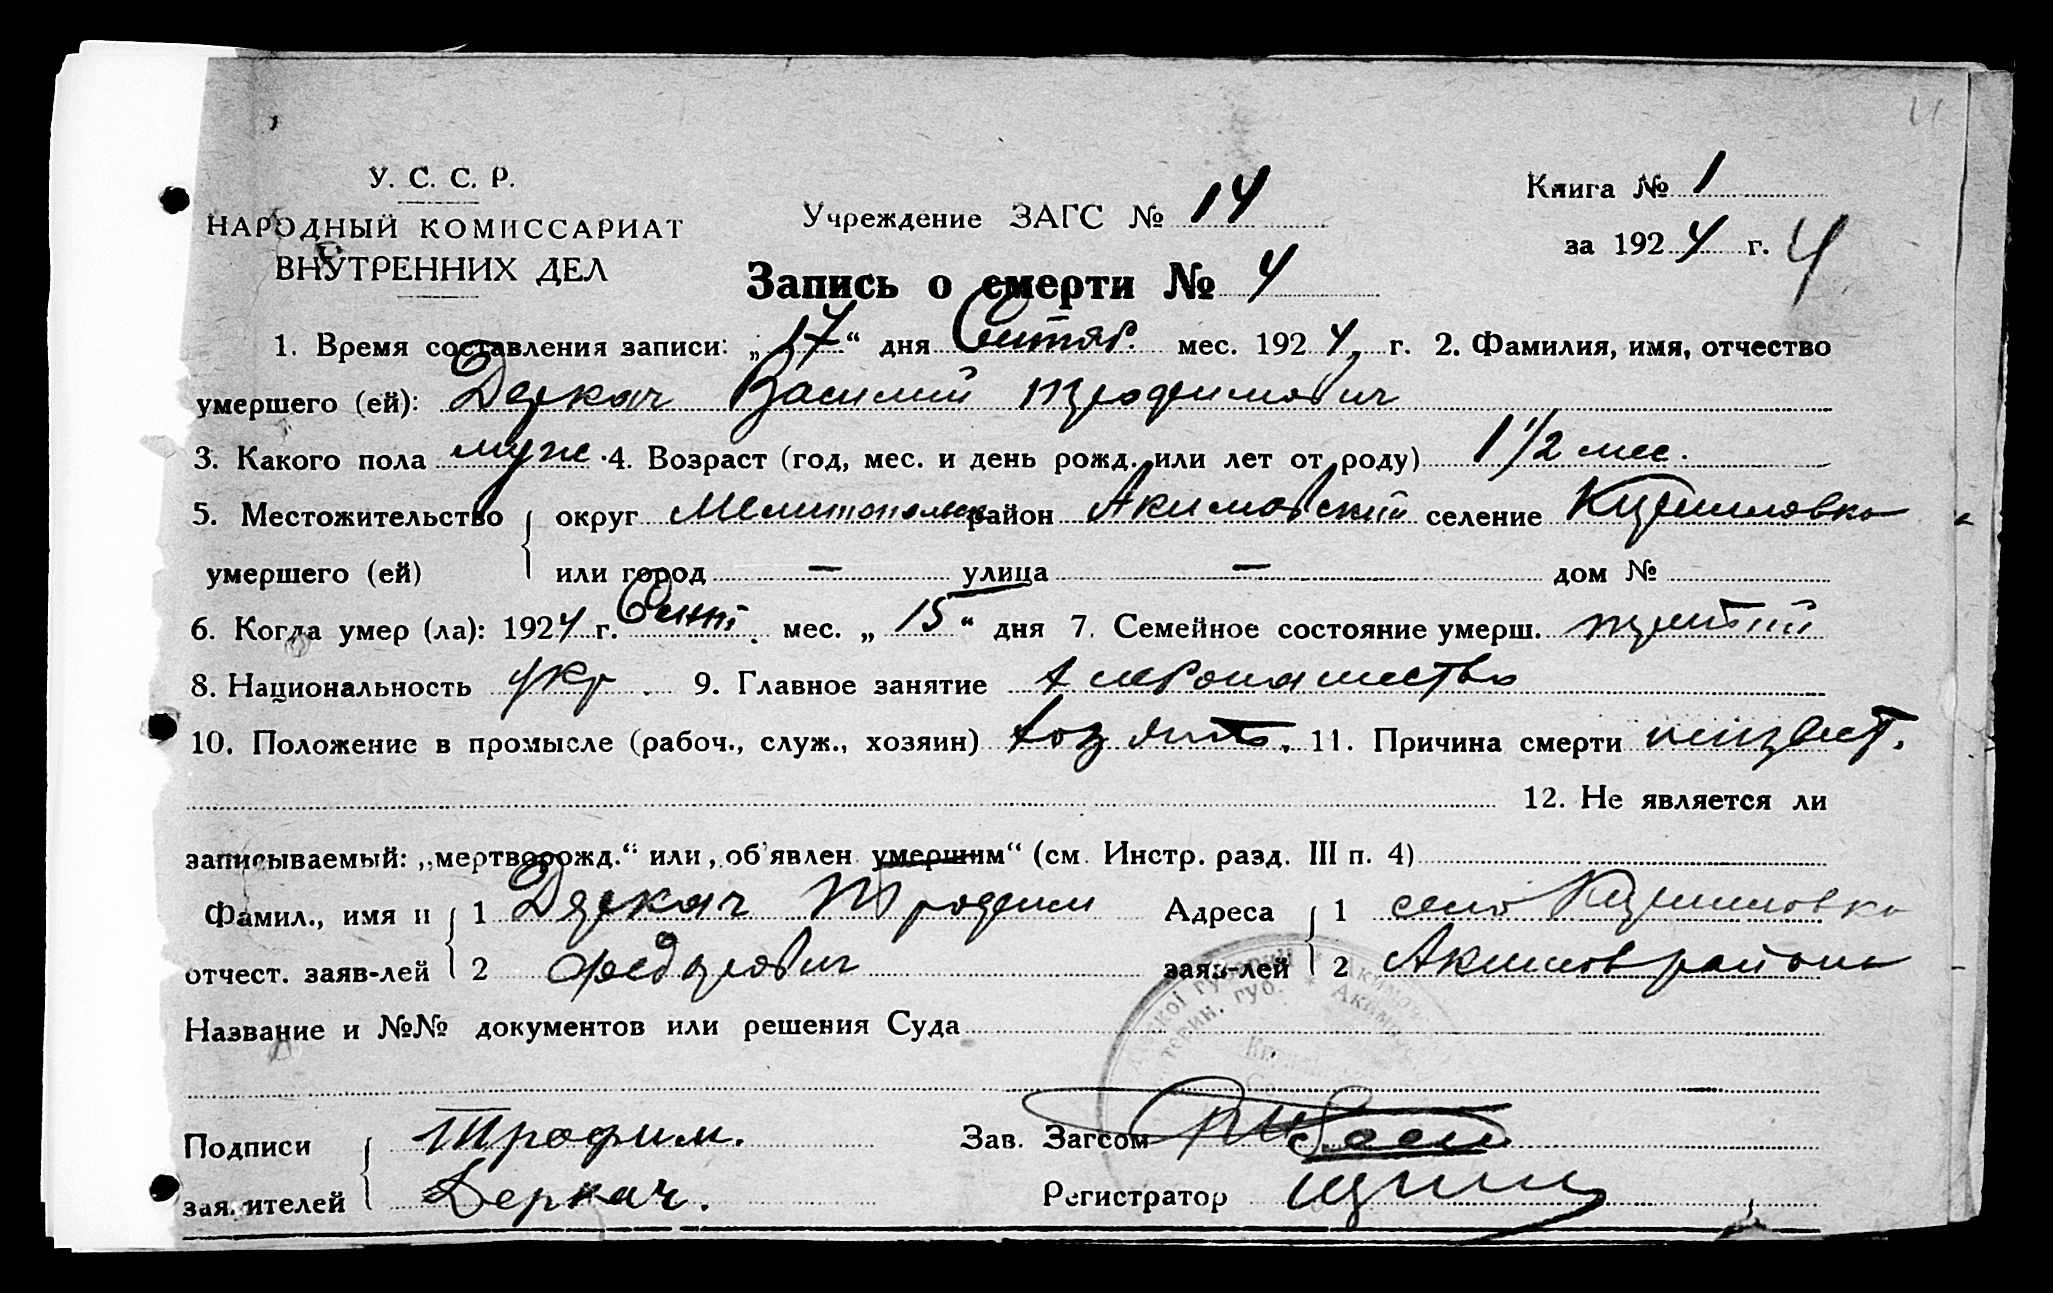 У. С. С. Р.
НАРОДНЫЙ КОМИССАРИАТ
ВНУТРЕННИХ ДЕЛ
Учреждение ЗАГС № 14
Книга № 1
за 1924 г. 4
Запись о смерти № 4
1. Время составления записи: „17“ дня Сентяб. мес. 1924 г. 2. Фамилия, имя, отчество
умершего (ей): Деркач Василий Трофимович
3. Какого пола муж. 4. Возраст (год, мес. и день рожд. или лет от роду) 1 1/2 мес.
5. Местожительство округ Мелитопольск район Акимовский селение
умершего (ей) или город — улица — дом №
6. Когда умер (ла): 1924 г. Сент. мес. „15“ дня 7. Семейное состояние умерш.
8. Национальность укр. 9. Главное занятие хлебопашество
10. Положение в промысле (рабоч., служ., хозяин) 11. Причина смерти неизвест.
12. Не является ли
записываемый: „мертворожд.“ или „об'явлен умершим“ (см. Инстр. разд. III п. 4)
Фамил., имя и 1 Деркач Трофим Адреса 1 село
отчест. заяв-лей 2 Федорович заяв-лей 2 Акимов района
Название и №№ документов или решения Суда
Подписи Трофим. Зав. Загсом
заявителей Деркач. Регистратор